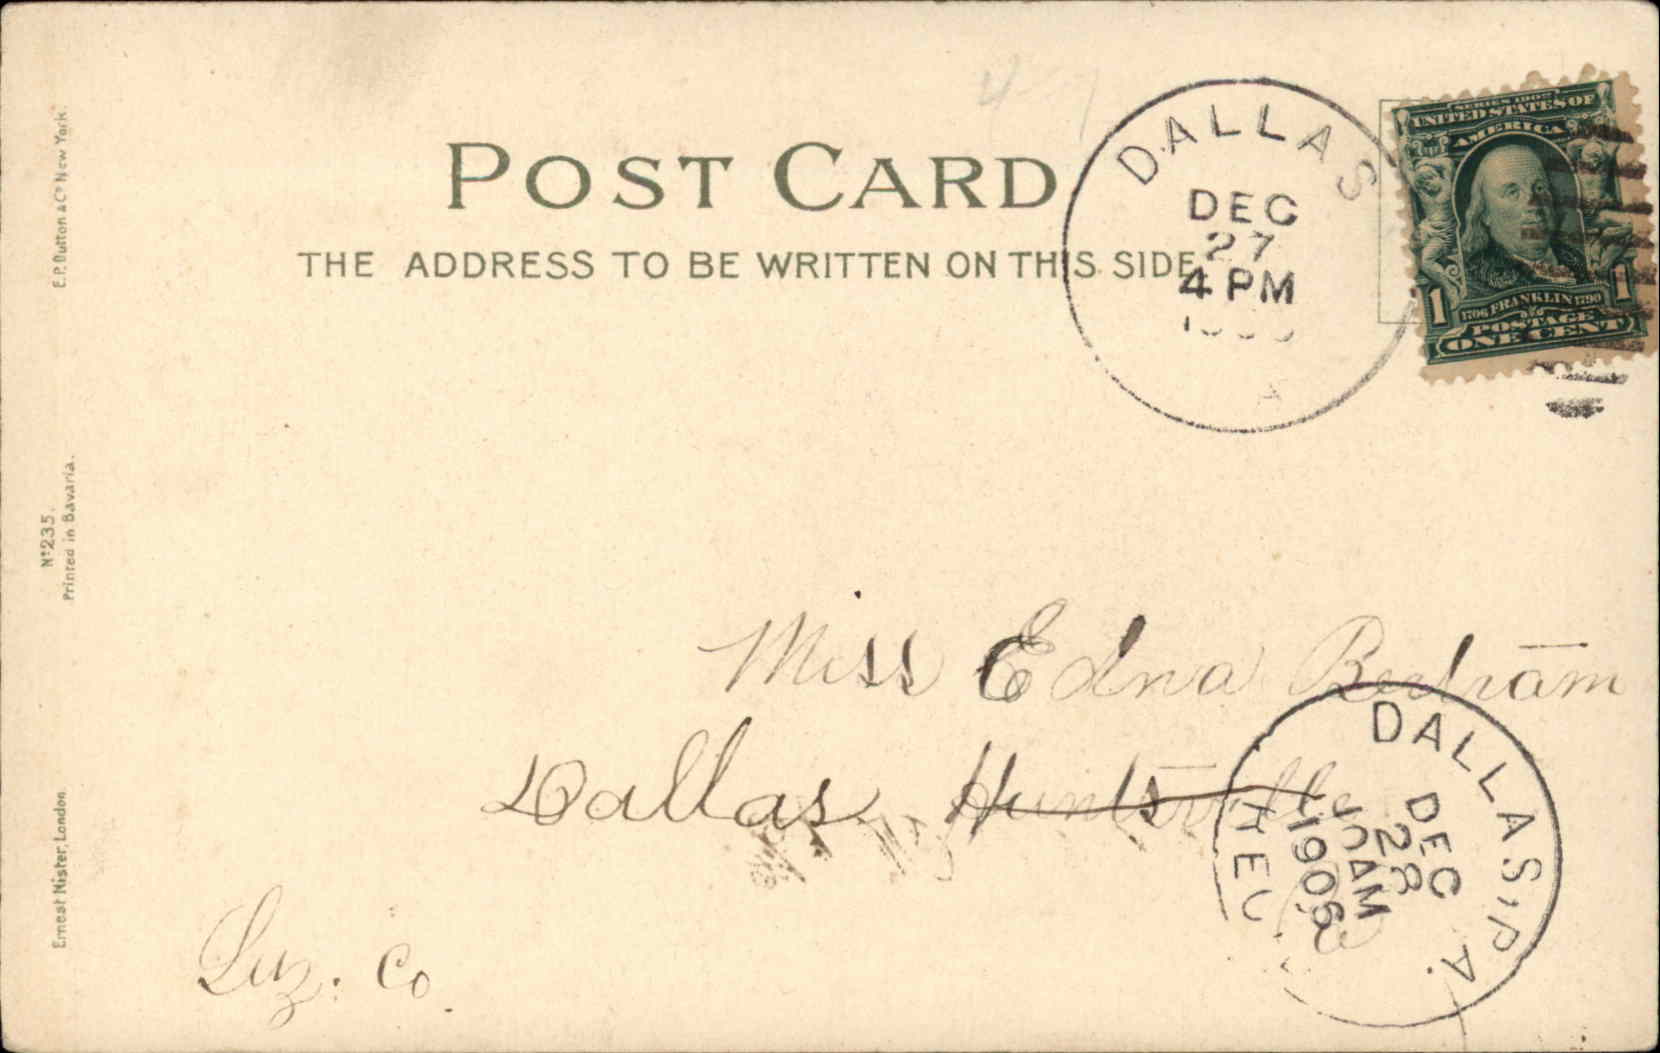 POST CARD
THE ADDRESS TO BE WRITTEN ON THIS SIDE.
DALLAS
DEC
27
4 PM
A
SERIES 1902
UNITED STATES OF
AMERICA
1 1
1706 FRANKLIN 1790
POSTAGE
ONE CENT
E.P. Dutton & Co New York.
No 235.
Printed in Bavaria.
Ernest Nister, London
Miss Edna Bertram
Dallas Huntsville
Luz. Co.
DALLAS, PA.
DEC
28
10 AM
1906
REC